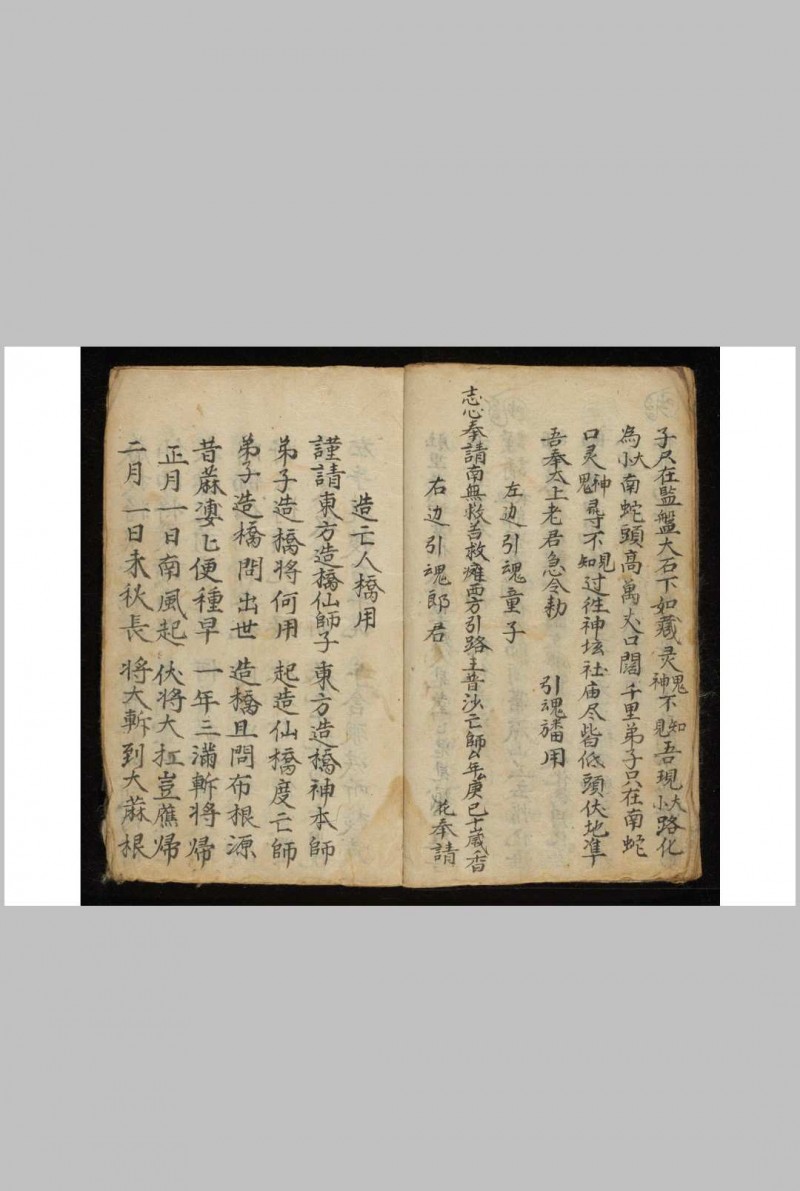 子尺在監盤大石下如藏灵魂神不知見吾現大小路化
為大小南蛇頭高萬丈口闊千里弟子只在南蛇
口灵神鬼尋不見知过往神坛社庙尽皆低頭伏地準
吾奉太上老君急令勅 引魂旛用
左边引魂童子
志心奉請南無救苦救难西方引路王菩沙亡師 年庚已 十歲香
右边引魂郎君 花奉請
造亡人橋用
謹請東方造橋仙師子東方造橋神本師
弟子造橋将何用 起造仙橋度亡師
弟子造橋問出世 造橋且問布根源
昔蔴凄七便種早 一年三滿斬将歸
正月一日南風起 伏将大扛豈應歸
二月一日未秋長 将大斬到大蔴根